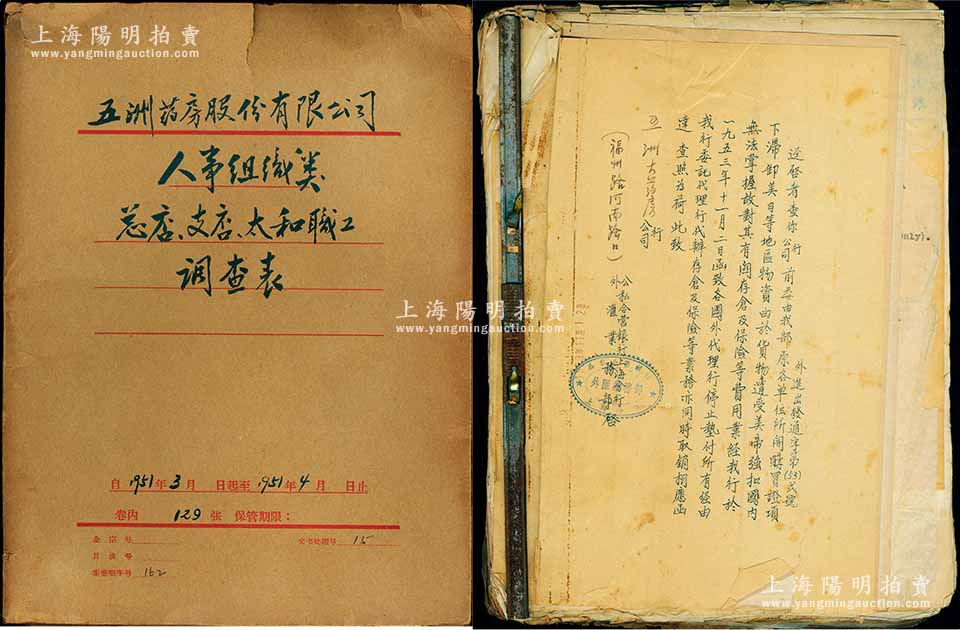 上海陽明拍賣
www.yangmingauction.com
五洲葯房股份有限公司
人事组织类
总店、支店、太和職工
调查表
自 1951 年 3 月 日起至 1951 年 4 月 日止
卷内 129 张 保管期限：
全宗号
文书处理号 15
目录号
案卷顺序号 162
上海陽明拍賣
www.yangmingauction.com
外進出發通字第(53)弍號
逕啓者查你行公司前委由我部原各單位所開購買證項
下滯卸美日等地區物資由於貨物遭受美帝強扣國内
無法掌握故對其有関存倉及保險等費用業經我行於
一九五三年十一月二日函致各國外代理行停止墊付所有經由
我行委託代理行代辦存倉及保險等業務亦同時取銷相應函
達 查照為荷 此致
五洲大药房 行公司
(福州路河南路口)
公私合營銀行上海分行
外滙業務部啓
上海陽明拍賣
www.yangmingauction.com
上海陽明拍賣
www.yangmingauction.com